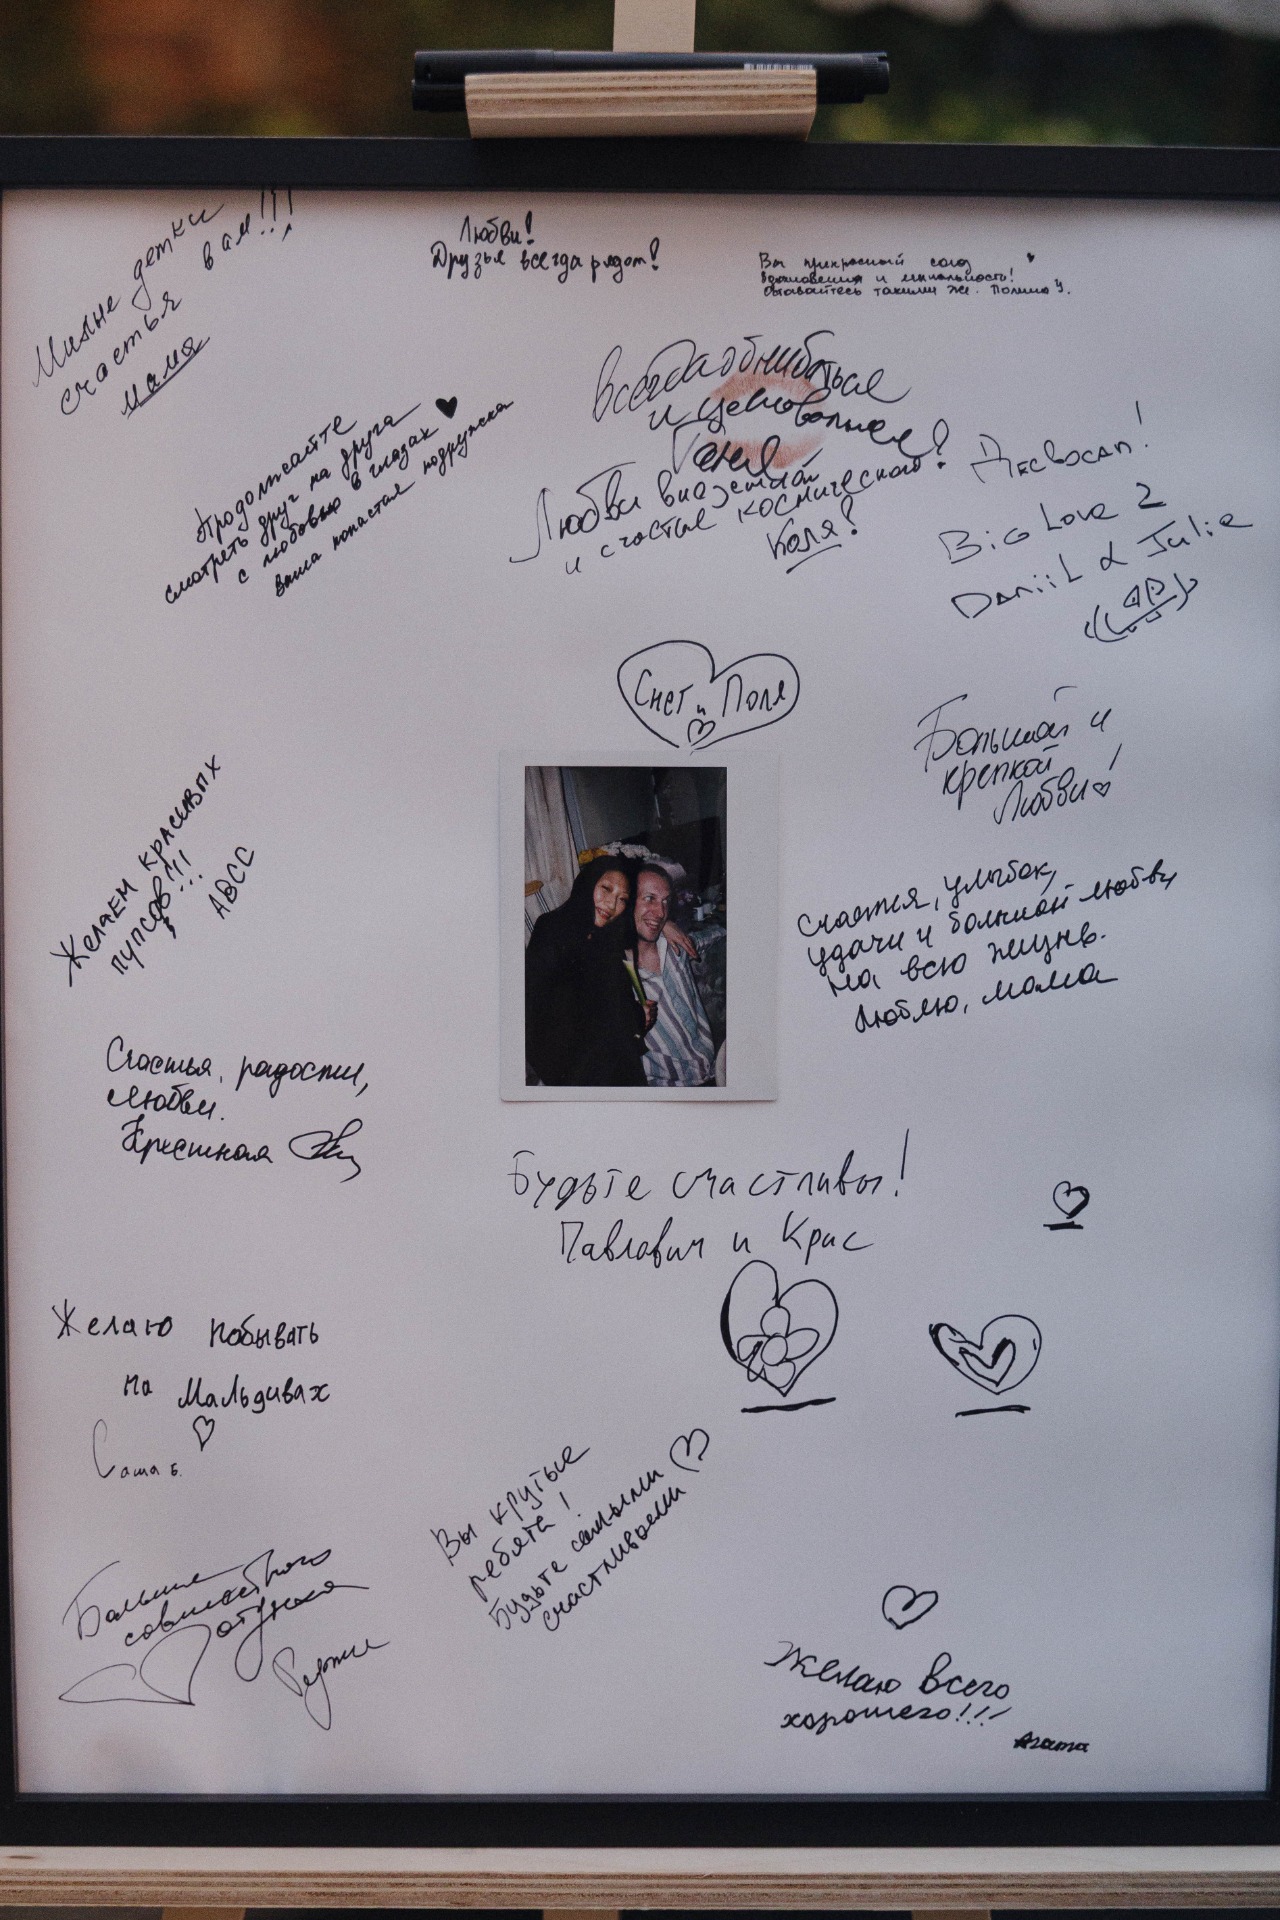 Милые детки
счастья вам!!!
мама
Любви!
Друзья всегда рядом!
Вы прекрасный союз
вдохновения и
Оставайтесь такими же. Полина У.
Продолжайте
смотреть друг на друга
с любовью в глазах
ваша подружка
Всегда обниматься
и целоваться
Таня
Любви внеземной
и счастья космического!
Коля!
Big Love 2
Daniil & Julia
Снег и Поля
Большой и
крепкой
Любви!
Желаем красивых
пупсов!!!
ABCC
Счастья, улыбок,
удачи и большой любви
на всю жизнь.
Люблю, мама
Счастья, радости,
любви.
Крестная
Будьте счастливы!
Павлович и Крис
Желаю побывать
на Мальдивах
Саша Б.
Вы крутые
ребята!
Будьте самыми
счастливыми
Больше
совместного
отдыха
Желаю всего
хорошего!!!
Агата